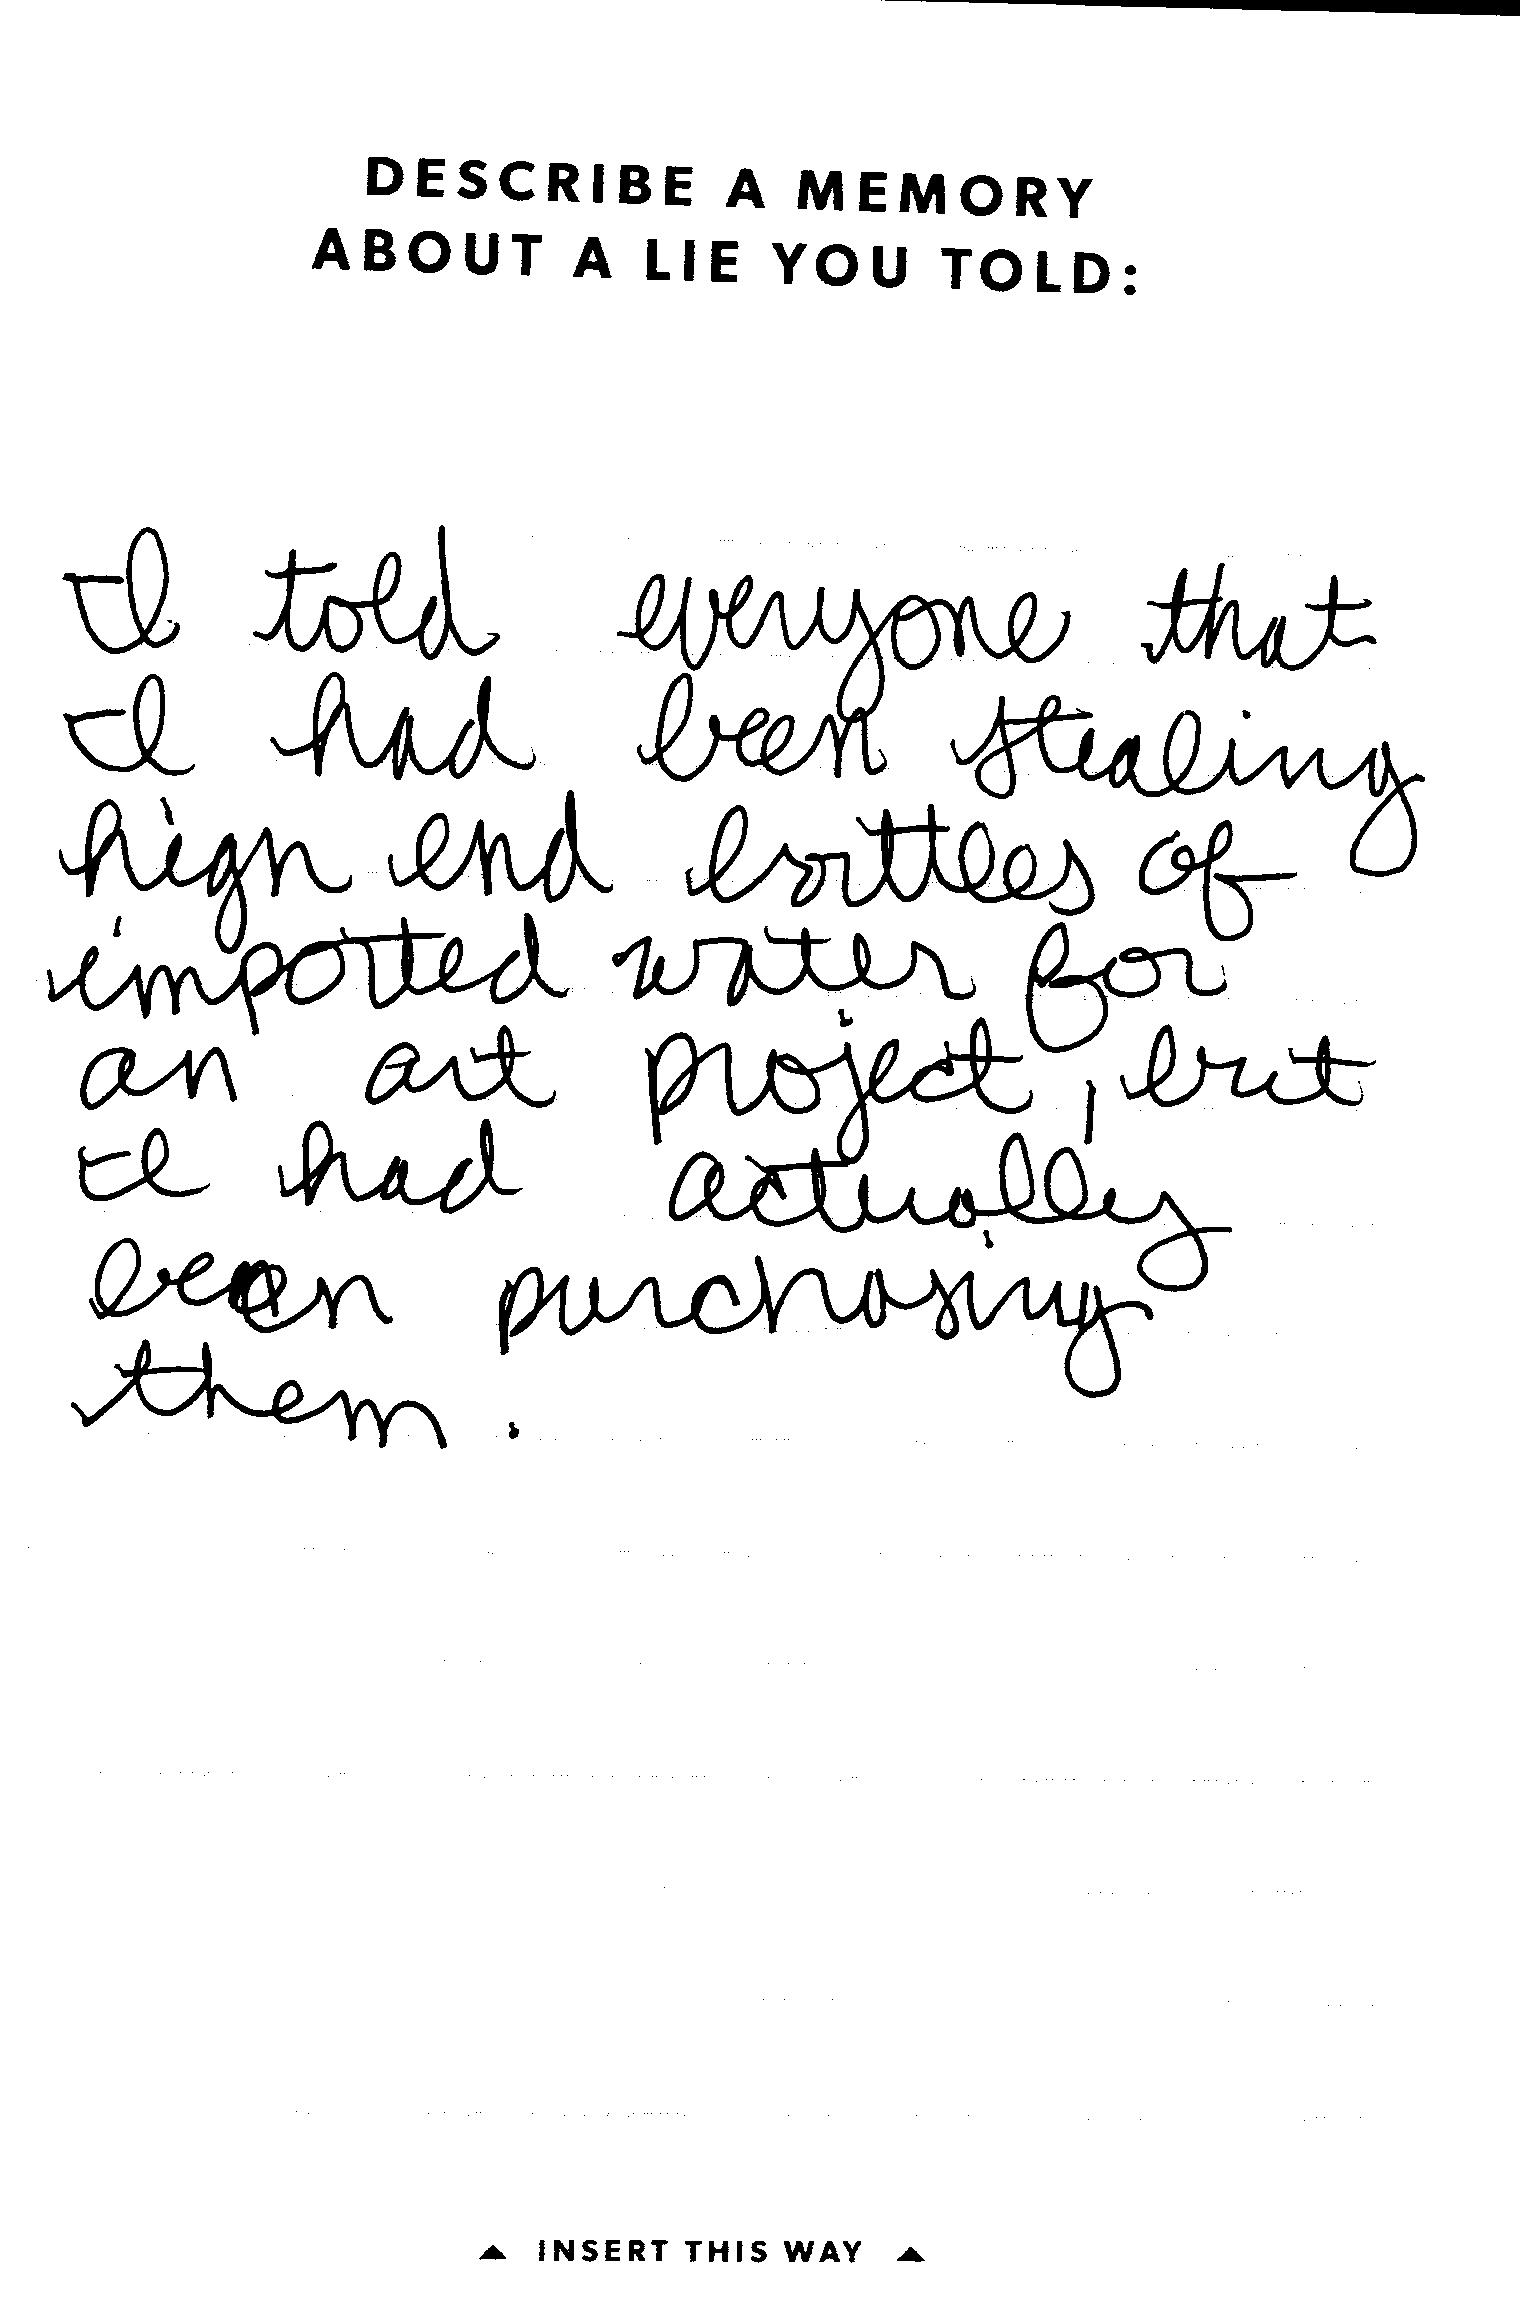 DESCRIBE A MEMORY
ABOUT A LIE YOU TOLD:
I told everyone that
I had been stealing
high end bottles of
imported water for
an art project, but
I had actually
been purchasing
them.
▲ INSERT THIS WAY ▲